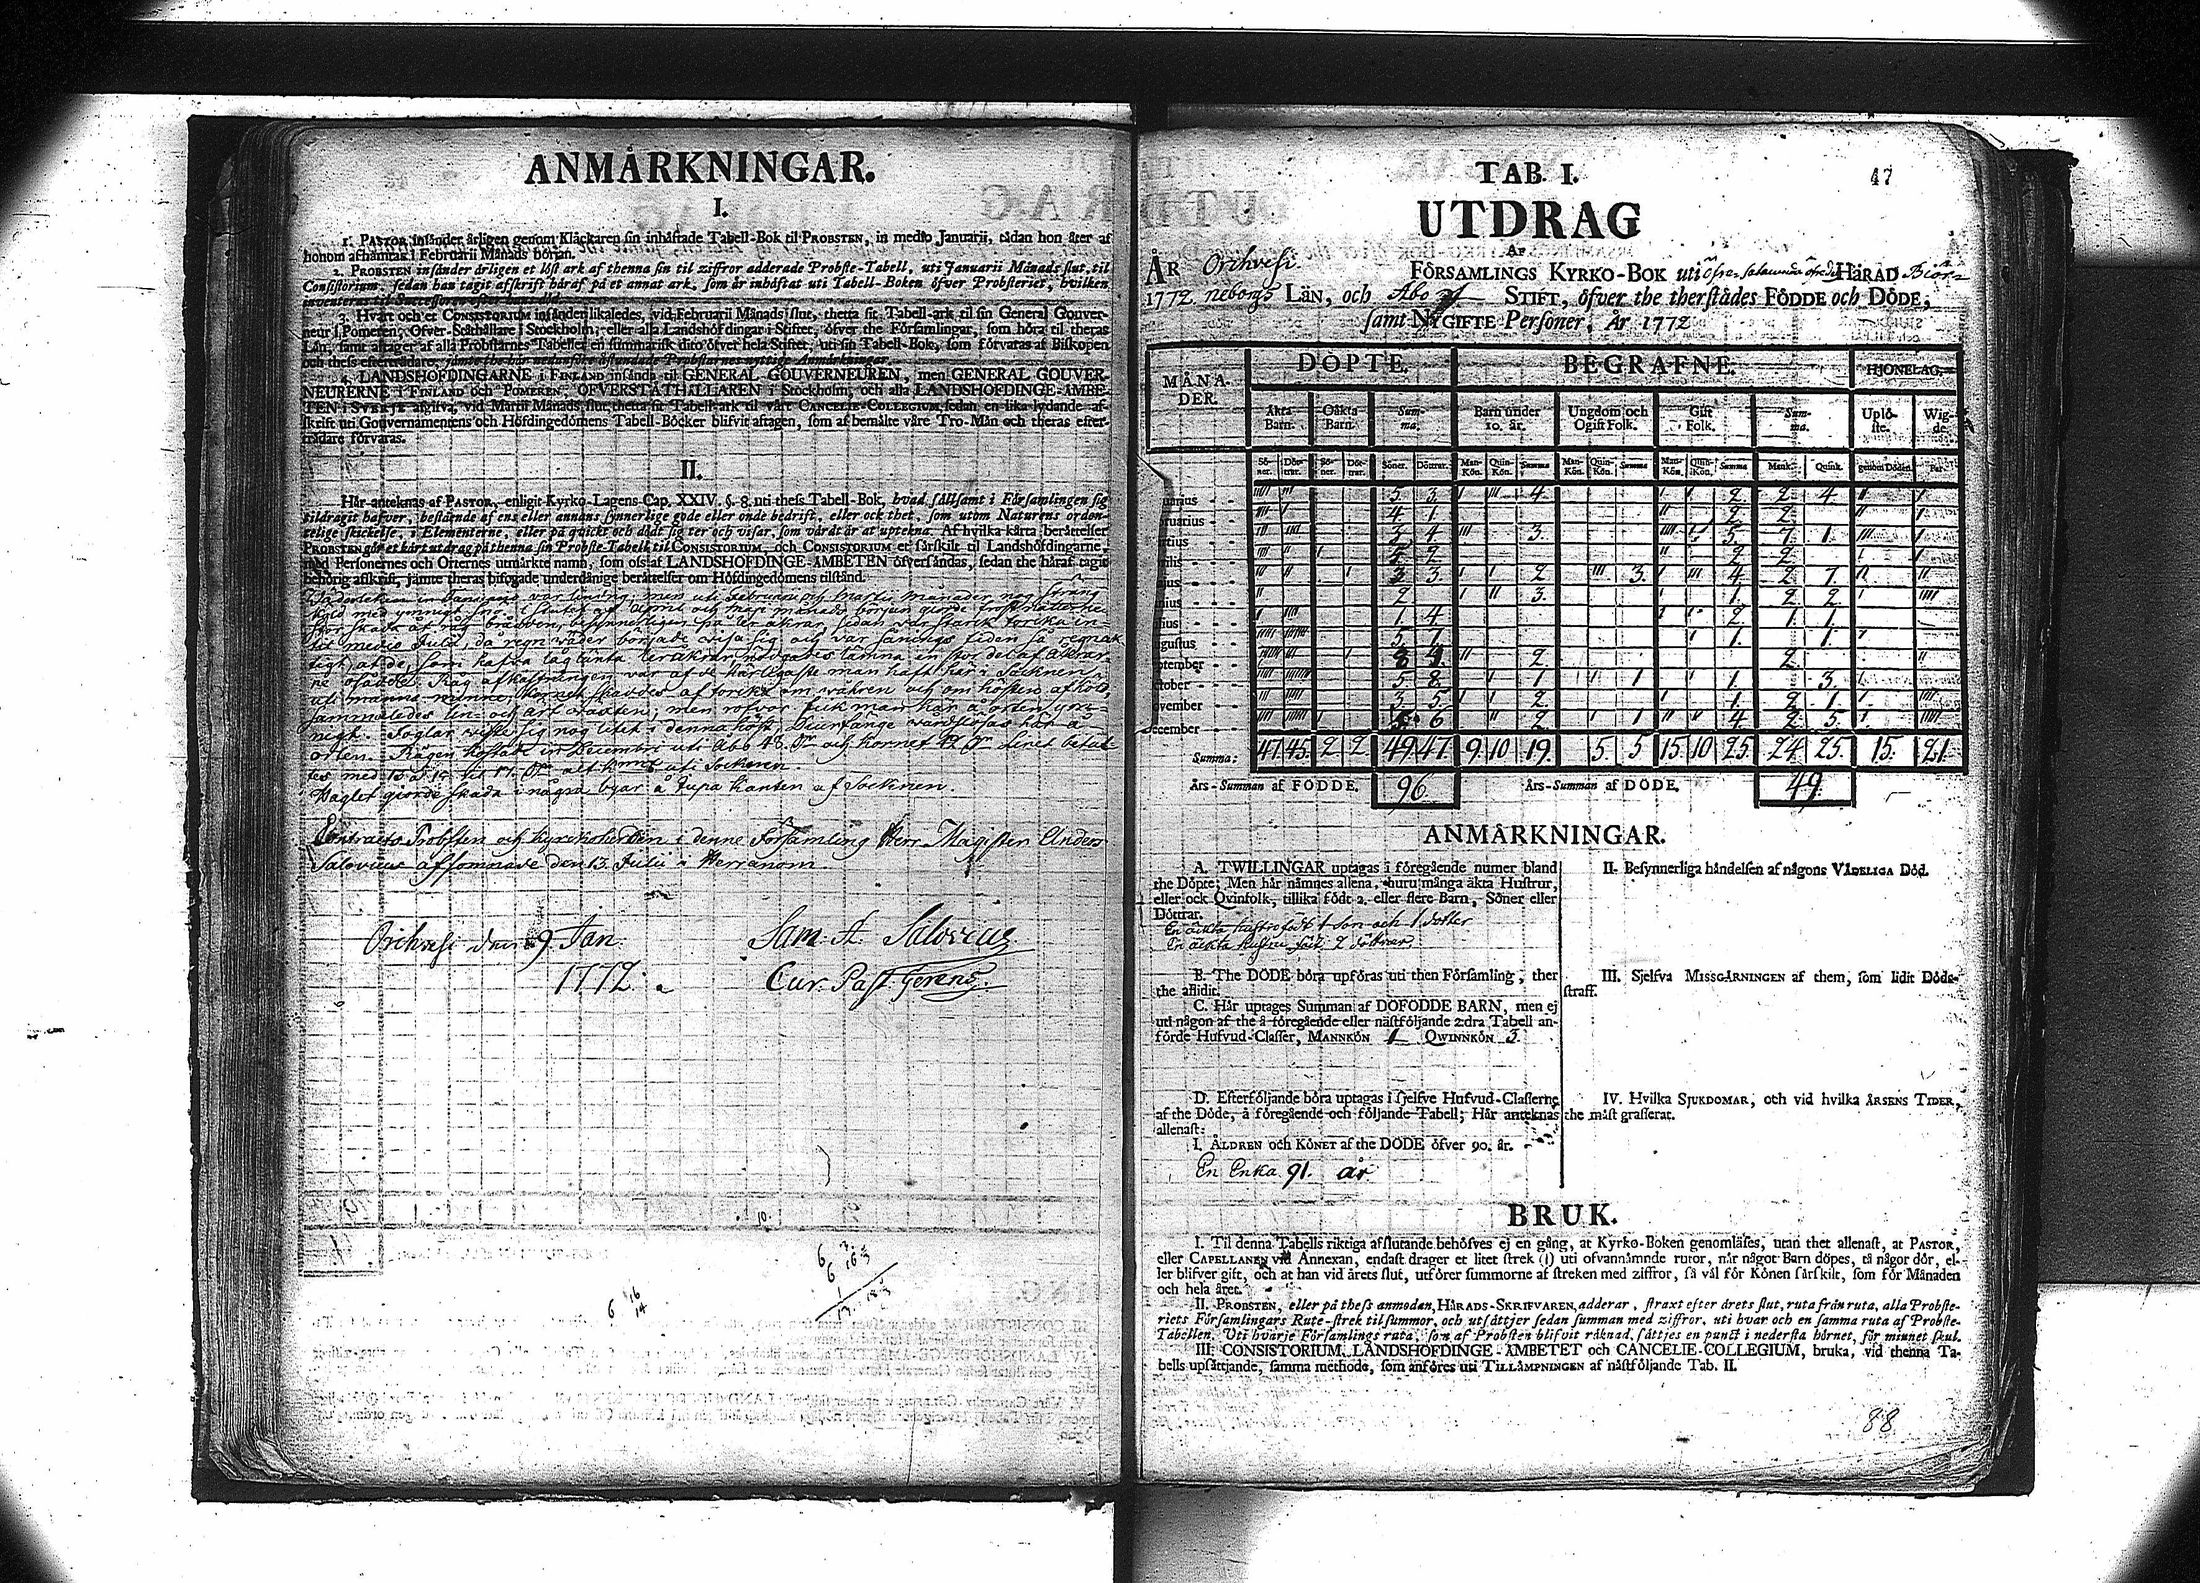 ANMÅRKNINGAR.
I.
1. PASTOR insånder årligen genom Klåckaren sin inhåftade Tabell-Bok til PROBSTEN, in medio Januarii, tådan hon åter af
honom afhåmtas i Februarii Månads början.
2. PROBSTEN insånder årligen et löst ark af thenna sin til ziffror adderade Probste-Tabell, uti Januarii Månads slut, til
Consistorium, sedan han tagit afskrift håraf på et annat ark, som år inhåftat uti Tabell-Boken öfver Probsteriet, hvilken
inventeras til Successoren efter hans död.
3. Hvart och et CONSISTORIUM insånden likaledes, vid Februarii Månads slut, thetta sit Tabell-ark til sin General Gouver-
neur i Pomern, Öfver-Ståthållare i Stockholm, eller alla Landshöfdingar i Stiftet, öfver the Församlingar, som höra til theras
Lån, samt aftager af alla Probstarnes Tabeller en summarisk dito öfver hela Stiftet, uti sin Tabell-Bok, som förvaras af Biskopen
och thess eftertrådare, jåmte the hår nedanföre åstundade Probstarnes nyttige Anmårkningar.
4. LANDSHÖFDINGARNE i FINLAND insånda til GENERAL GOUVERNEUREN, men GENERAL GOUVER-
NEURERNE i FINLAND och POMERN, ÖFVERSTÅTHÅLLAREN i Stockholm, och alla LANDSHÖFDINGE-ÅMBE-
TEN i SVERJE afgifva, vid Martii Månads slut, thetta sit Tabell-ark til vårt CANCELIE-COLLEGIUM, sedan en lika lydande af-
skrift uti Gouvernamentens och Höfdingedömens Tabell-Böcker blifvit aftagen, som af bemålte våre Tro-Mån och theras efter-
trådare förvaras.
II.
Hår anteknas af PASTOR, enligit Kyrko-Lagens Cap. XXIV. §. 8. uti thess Tabell-Bok, hvad sållsamt i Församlingen sig
tildragit hafver, bestående af ens eller annans synnerlige gode eller onde bedrift, eller ock thet, som utom Naturens orden-
telige skickelse, i Elementerne, eller på quickt och dödt sig ter och visar, som vårdt år at uptekna. Af hvilka kårta beråttelser
PROBSTEN gör et kårt utdrag på thenna sin Probste-Tabell til CONSISTORIUM, och CONSISTORIUM et sårskilt til Landshöfdingarne,
med Personernes och Orternes utmårkte namn, som oss af LANDSHÖFDINGE-ÅMBETEN öfversåndas, sedan the håraf tagit
behörig afskrift, jåmte theras bifogade underdånige beråttelser om Höfdingedömens tilstånd.
Wåderleken in Januario var lindrig, men uti Februarii och Martii månader nog sträng
köld med ymnigt snö. I slutet af Aprill och Maji månads början giorde frost nätterne
stor skada åt råg brodden, besynnerligen på ler åkrar, sedan var stark torka in-
til medio Julii, då regn wäder började visa sig och var sånings tiden så regnak
tigt, at de, som hafva låglänta leråkrar nödgades lämna en stor del af åkrar-
ne osådde. Råg afkastningen var af de härligaste man haft här i Socknen
uti manna minne. Kornet skaddes af torka om wåhren och om hösten af köld,
sammaledes lin- och ärt wäxten; men rofvor fick man här å orten ym-
nigt. Foglar viste sig nog litet i denna höst. Diurfänge wärdslösas här å
orten. Rågen kostade in Decembri uti Åbo 48. och Kornet
tes med 15 à 16 til 17. alt uti Socknen.
Haglet giorde skada i några byar å Jupa kanten af Socknen.
Contracts Probsten och Kyrckoherden i denne Församling Herr Magister Anders
Salovius afsomnade den 13. Julii i Herranom.
Orihvesi den 9. Jan.
Sam: A. Salovius
1772.
Cur. Past. Gerens.
10.
6
16
14
TAB I.
47
UTDRAG
AF
ÅR Orihvesi FÖRSAMLINGS KYRKO-BOK uti öfra Satacunda öfredels HÄRAD Biör-
1772 neborgs LÄN, och Åbo STIFT, öfver the therstådes FÖDDE och DÖDE;
samt NYGIFTE Personer, År 1772
MÅNA-DER. DÖPTE. BEGRAFNE. HJONELAG.
Åkta Barn. Oåkta Barn. Summa. Barn under 10. år. Ungdom och Ogift Folk. Gift Folk. Summa. Uplö-ste. Wig-de.
Sö-ner. Döt-trar. Sö-ner. Döt-trar. Söner. Döttrar. Man-Kön. Quin-Kön. Summa Man-Kön. Quin-Kön. Summa Man-Kön. Quin-Kön. Summa Mank. Quink. genom Döden. Par.
nuarius - - 5 3 4 2 2 4
bruarius - - 4 1 2 2
rtius - - 3 4 3 5 7 1
rilis - - 5 2 2 2
jus - - 3 3 2 3 4 2 7
nius - - 2 3 1 2 2
lius - - 1 4 2 1 1
gustus - - 5 7 1 1
ptember - - 8 4 2 2
tober - - 5 8 1 1 1 3
ovember - - 3 5 2 1 2 1
december - - 5 6 2 1 4 2 5
Summa: 47. 45. 2 2 49. 47. 9. 10 19. 5 5 15 10 25. 24. 25. 15. 21.
Års-Summan af FÖDDE. 96. Års-Summan af DÖDE. 49.
ANMÅRKNINGAR.
A. TWILLINGAR uptagas i föregående numer bland
the Döpte; Men hår nåmnes allena, huru många åkta Hustrur,
eller ock Qvinfolk, tillika födt 2. eller flere Barn, Söner eller
Döttrar.
En äckta hustru födt 1 Son och 1 dotter
En äckta hustru födt 2 döttrar.
B. The DÖDE böra upföras uti then Församling, ther
the aflidit.
C. Hår uptages Summan af DÖFÖDDE BARN, men ej
uti någon af the å föregående eller nåstföljande 2:dra Tabell an-
förde Hufvud-Classer, MANNKÖN 1 QWINNKÖN 3.
D. Efterföljande böra uptagas i sjelfve Hufvud-Classerne
af the Döde, å föregående och följande Tabell; Hår anteknas
allenast:
I. ÅLDREN och KÖNET af the DÖDE öfver 90. år.
En Enka 91. år
II. Besynnerliga håndelsen af någons VÅDELIGA Död.
III. Sjelfva MISSGÅRNINGEN af them, som lidit Döds-
straff.
IV. Hvilka SJUKDOMAR, och vid hvilka ÅRSENS TIDER,
the måst grasserat.
BRUK.
I. Til denna Tabells riktiga afslutande behöfves ej en gång, at Kyrko-Boken genomlåses, utan thet allenast, at PASTOR,
eller CAPELLANEN vid Annexan, endast drager et litet strek (1) uti ofvannåmnde rutor, når något Barn döpes, tå någor dör, el-
ler blifver gift, och at han vid årets slut, utförer summorne af streken med ziffror, så vål för Könen sårskilt, som för Månaden
och hela året.
II. PROBSTEN, eller på thess anmodan, HÅRADS-SKRIFVAREN, adderar, straxt efter årets slut, ruta från ruta, alla Probste-
riets Församlingars Rute-strek til summor, och utsåttjer sedan summan med ziffror, uti hvar och en samma ruta af Probste-
Tabellen. Uti hvarje Församlings ruta, som af Probsten blifvit råknad, såttjes en punct i nedersta hörnet, för minnet skul.
III. CONSISTORIUM, LANDSHÖFDINGE-ÅMBETET och CANCELIE-COLLEGIUM, bruka, vid thenna Ta-
bells upsåttjande, samma methode, som anföres uti TILLÅMPNINGEN af nåstföljande Tab. II.
88